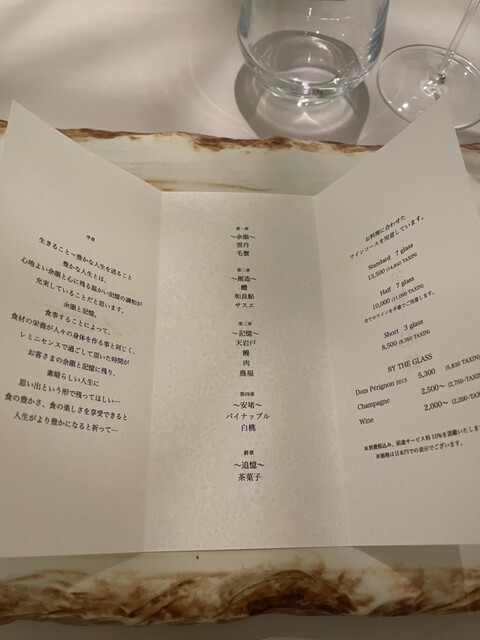 序章
生きること＝豊かな人生を送ること
豊かな人生とは、
心地よい余韻と心に残る温かい記憶の調和が
充実していることだと思います。
余韻と記憶。
食事することによって、
食材の栄養が人々の身体を作る事と同じく、
レミニセンスで過ごして頂いた時間が
お客さまの余韻と記憶に残り、
素晴らしい人生に
思い出という形で残ってほしい…
食の豊かさ、食の楽しさを享受できると
人生がより豊かになると祈って…
第一章
〜余韻〜
雲丹
毛蟹
第二章
〜創造〜
鱧
和良鮎
サスエ
第三章
〜記憶〜
天岩戸
鰻
肉
農福
第四章
〜安堵〜
パイナップル
白桃
終章
〜追憶〜
茶菓子
お料理に合わせた
ワインコースを用意しています。
Standard 7 glass
13,500 (14,850 TAXIN)
Half 7 glass
10,000 (11,000 TAXIN)
全てのワインを半量でご用意します。
Short 3 glass
8,500 (9,350 TAXIN)
BY THE GLASS
Dom Pérignon 2013 5,300 (5,830 TAXIN)
Champagne 2,500〜 (2,750-TAXIN)
Wine 2,000〜 (2,200-TAXIN)
※消費税込み、別途サービス料10%を頂戴いたしま
※価格は日本円での表示でございます。